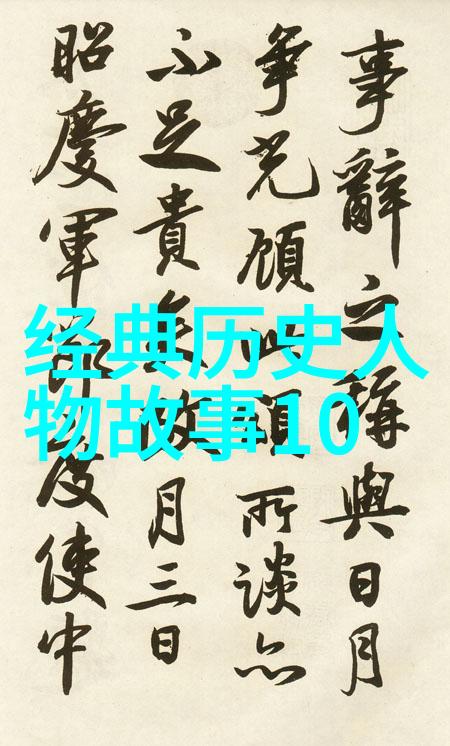 事辭之稱與日月
爭光顧此所談亦
不足貴月三日
昭慶軍節度使中
经典历史人
物故事10